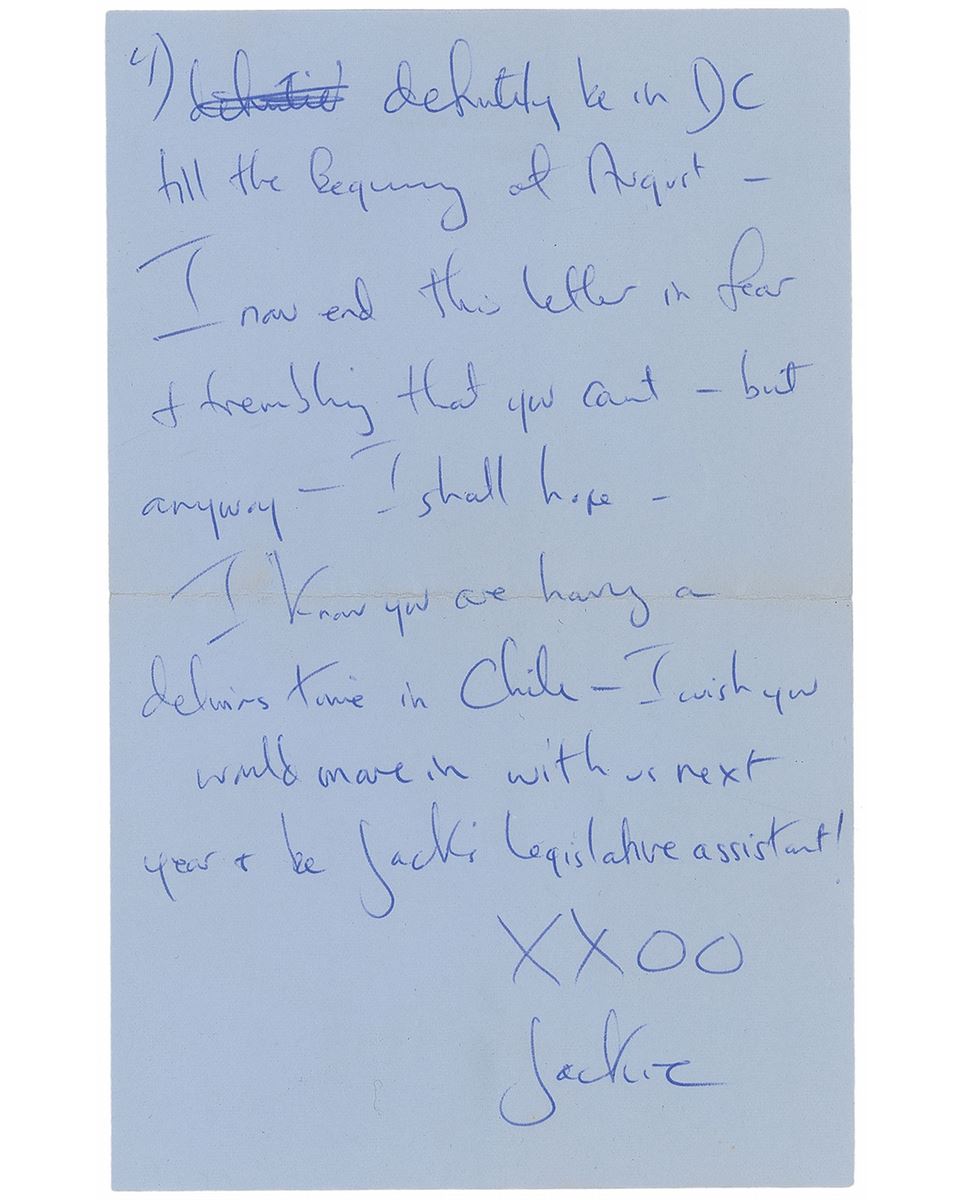 4) ~~definitel~~ definitely be in DC
till the beginning of August —
I now end this letter in fear
& trembling that you cant — but
anyway — I shall hope —
I know you are having a
delirious time in Chile — I wish you
would move in with us next
year & be Jack's legislative assistant!
XXOO
Jackie